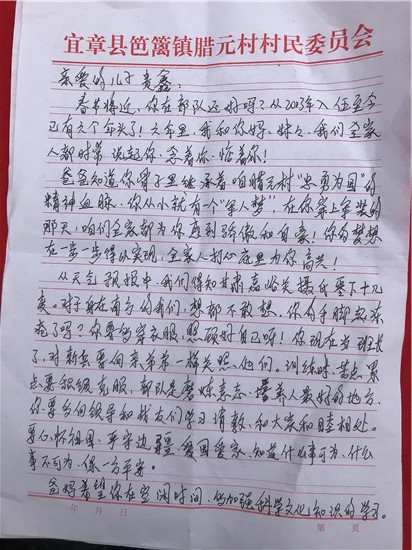 宜章县笆篱镇腊元村村民委员会
亲爱的儿子 :
春节将近，你在部队还好吗？从2013年入伍至今
已有六个年头了！六年里，我和你妈、妹々，我们全家
人都时常说起你、念着你、惦着你！
爸爸知道你骨子里继承着咱腊元村“忠勇为国”的
精神血脉，你从小就有一个“军人梦”，在你穿上军装的
那天，咱们全家都为你感到骄傲和自豪！你的梦想
在一步一步得以实现，全家人打心底里为你高兴！
从天气预报中，我们得知甘肃嘉峪关摄氏零下十几
度。对于身在南方的我们，想都不敢想，你的手脚起冻
疮了吗？你要多穿衣服，照顾好自己呀！你现在当班长
了，对新兵要向亲弟弟一样关照他们。训练时苦点累
点要积极克服，部队是磨炼意志、培养人最好的地方，
你要多向领导和战友们学习请教，和大家和睦相处。
要心怀祖国，平安边疆，爱国爱家，知道什么事可为、什么
事不可为，保一方平安。
爸妈希望你在空闲时间，多加强科学文化知识的学习。
年 月 日 第 页